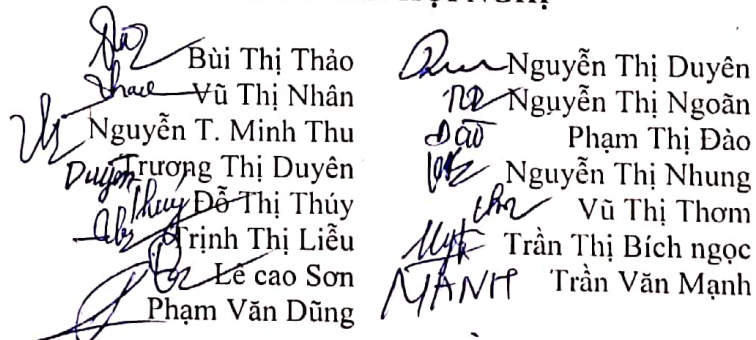 Bùi Thị Thảo
Vũ Thị Nhân
Nguyễn T. Minh Thu
Duyên Trương Thị Duyên
Thuý Đỗ Thị Thúy
Trịnh Thị Liễu
Lê cao Sơn
Phạm Văn Dũng
Nguyễn Thị Duyên
Nguyễn Thị Ngoãn
Đào Phạm Thị Đào
Nguyễn Thị Nhung
Vũ Thị Thơm
Trần Thị Bích ngọc
MẠNH Trần Văn Mạnh